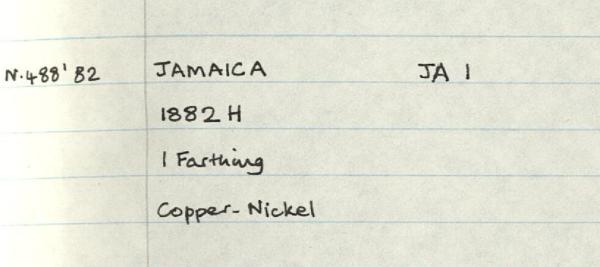 N.488'82 JAMAICA JA 1
1882 H
1 Farthing
Copper-Nickel